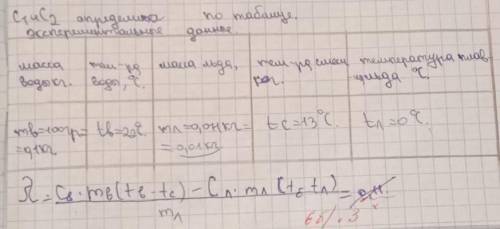 C1 и C2 определила по таблице.
экспериментальное данное
масса воды кг.
тем-ра воды, °C.
масса льда, кг.
тем-ра смеси
температура плавл льда °C.
mв=100гр=
=0,1кг
tв=20°C
mл=0,04кг
=0,01кг
tc=13°C.
tл=0°C.
λ = Cв·mв(tв-tc) - Cл·mл(tc tл) =
mл